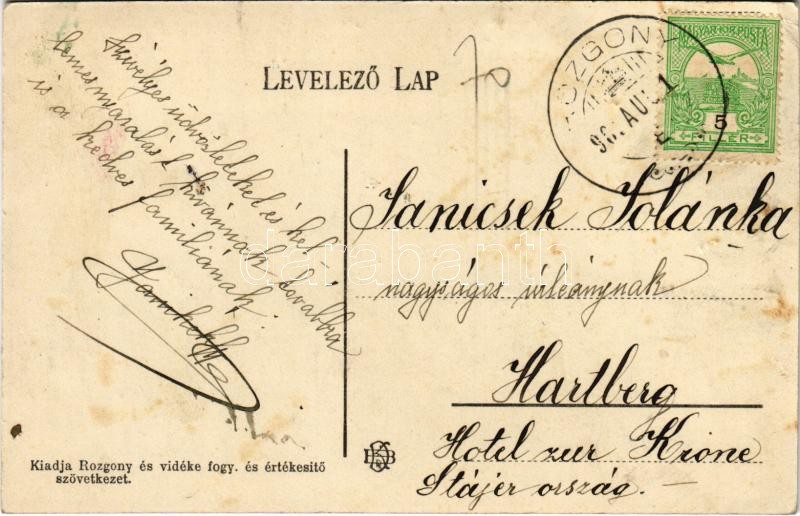 LEVELEZŐ LAP
70
ROZGONY
MAGYAR·KIR·POSTA
5
FILLÉR
Szivélyes üdvözleteket és kel-
lemes nyaralást kivánnak továbbra
is a kedves
familiának
Janicsek Jolánka
nagyságos úrleánynak
Hartberg
Hotel zur Krone
Stájer ország.
Kiadja Rozgony és vidéke fogy. és értékesitő
szövetkezet.
darabanth